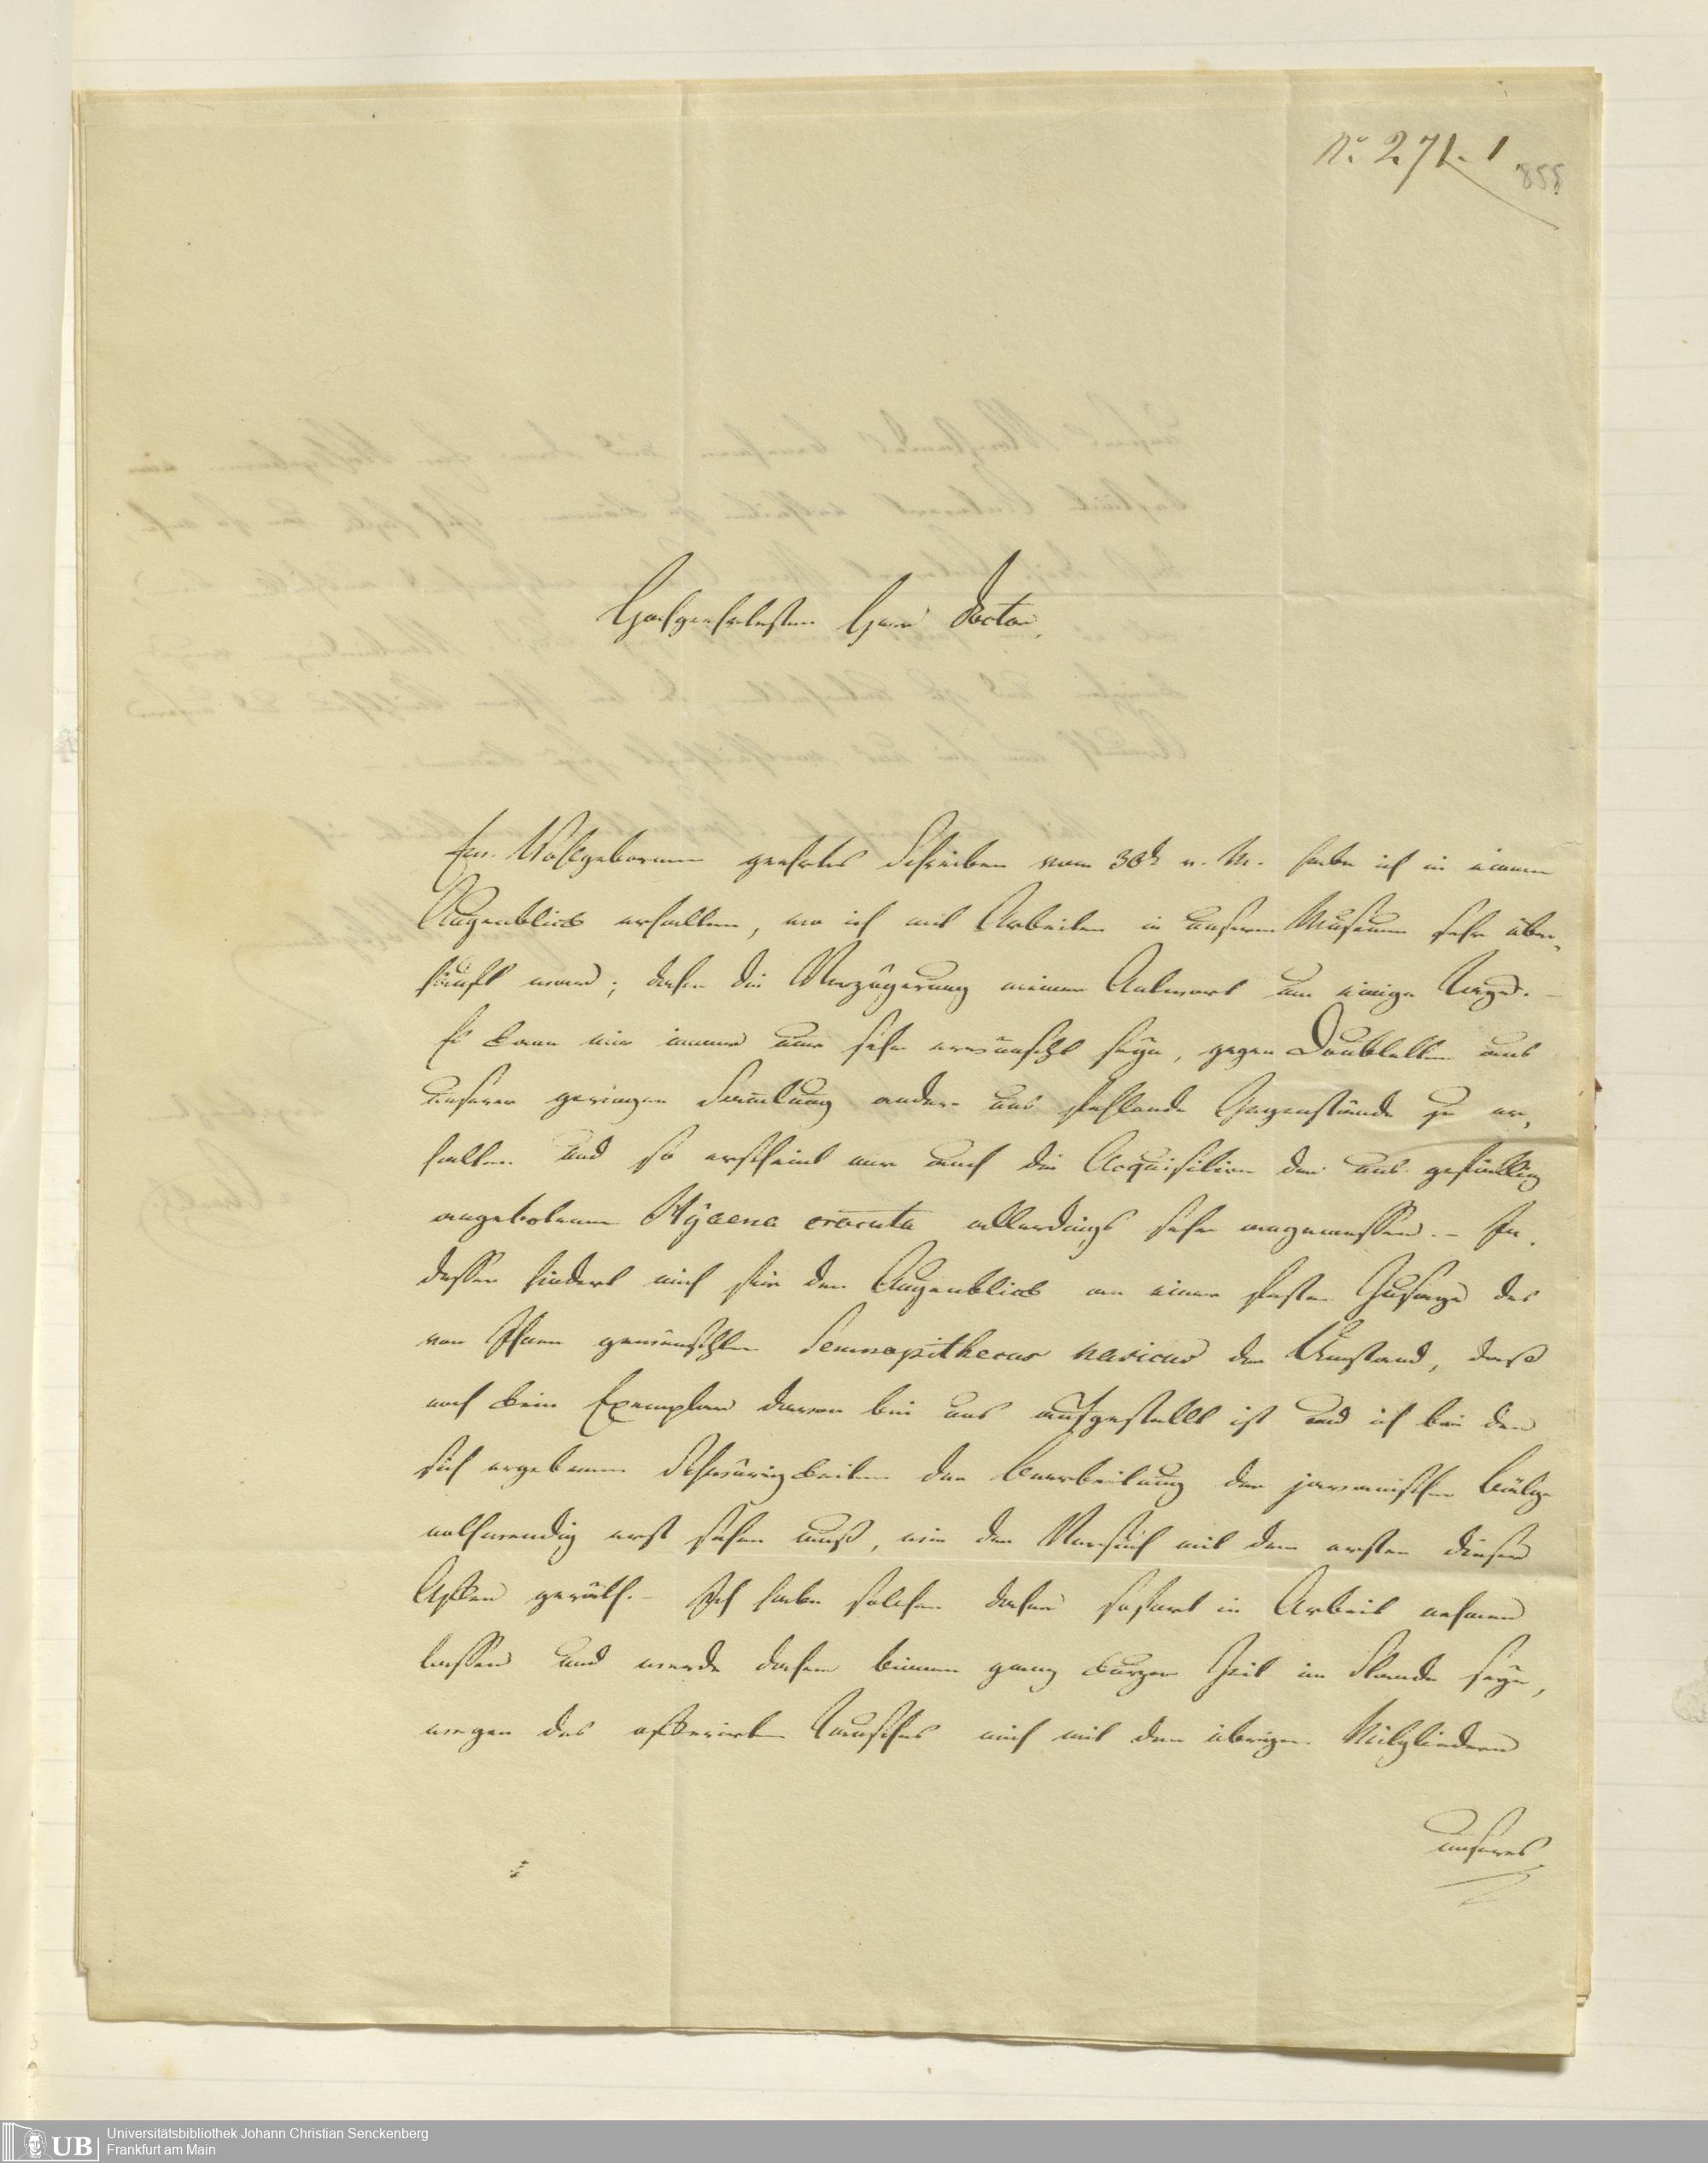 No. 271.1
858
Hochgeehrtester Herr Doctor,
Ew. Wohlgeboren geehrtes Schreiben vom 30t v. M. habe ich in einem
Augenblick erhalten, wo ich mit Arbeiten in unserem Museum sehr über-
häuft war; daher die Verzögerung meiner Antwort um einige Tage. –
Es kann mir immer nur sehr erwünscht seyn, gegen Doubletten aus
unserer geringen Samlung andere uns fehlende Gegenstände zu er-
halten und so erscheint mir auch die Acquisition der uns gefällig
angebotenen Hÿaena crocuta allerdings sehr angemessen. – In-
dessen hindert mich für den Augenblick an einer festen Zusage des
von Ihnen gewünschten Semnopithecus nasicus der Umstand, daß
noch kein Exemplar davon bei uns aufgestellt ist und ich bei den
sich ergebenen Schwürigkeiten der Bearbeitung der javanischen Bälge
nothwendig erst sehen muß, wie der Versuch mit dem ersten dieser
Affen geräth. – Ich habe solchen daher sofort in Arbeit nehmen
lassen und werde daher binnen ganz kurzer Zeit im Stande seyn,
wegen des offerirten Tausches mich mit den übrigen Mitgliedern
unseres
Universitätsbibliothek Johann Christian Senckenberg
UB Frankfurt am Main